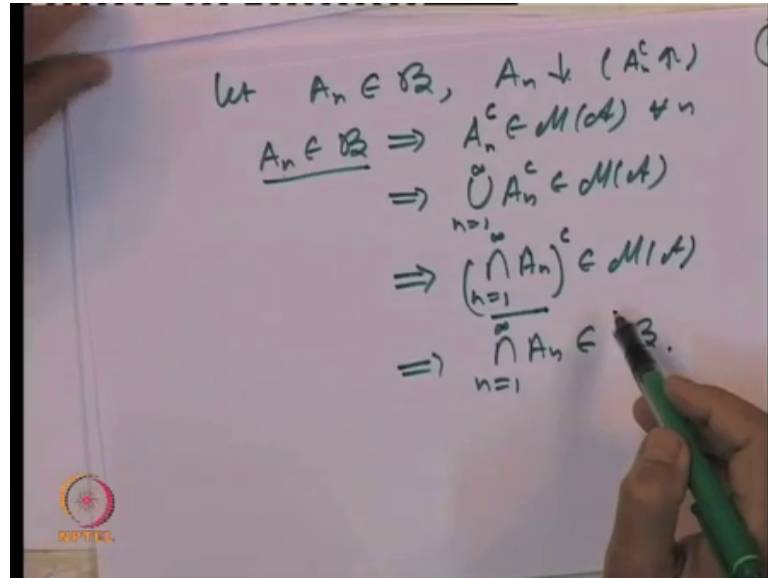 let Aₙ ∈ ℬ, Aₙ ↓ (Aₙᶜ ↑)
Aₙ ∈ ℬ ⟹ Aₙᶜ ∈ ℳ(𝒜) ∀ n
⟹ ⋃_{n=1}^{∞} Aₙᶜ ∈ ℳ(𝒜)
⟹ (⋂_{n=1}^{∞} Aₙ)ᶜ ∈ ℳ(𝒜)
⟹ ⋂_{n=1}^{∞} Aₙ ∈ ℬ.
NPTEL